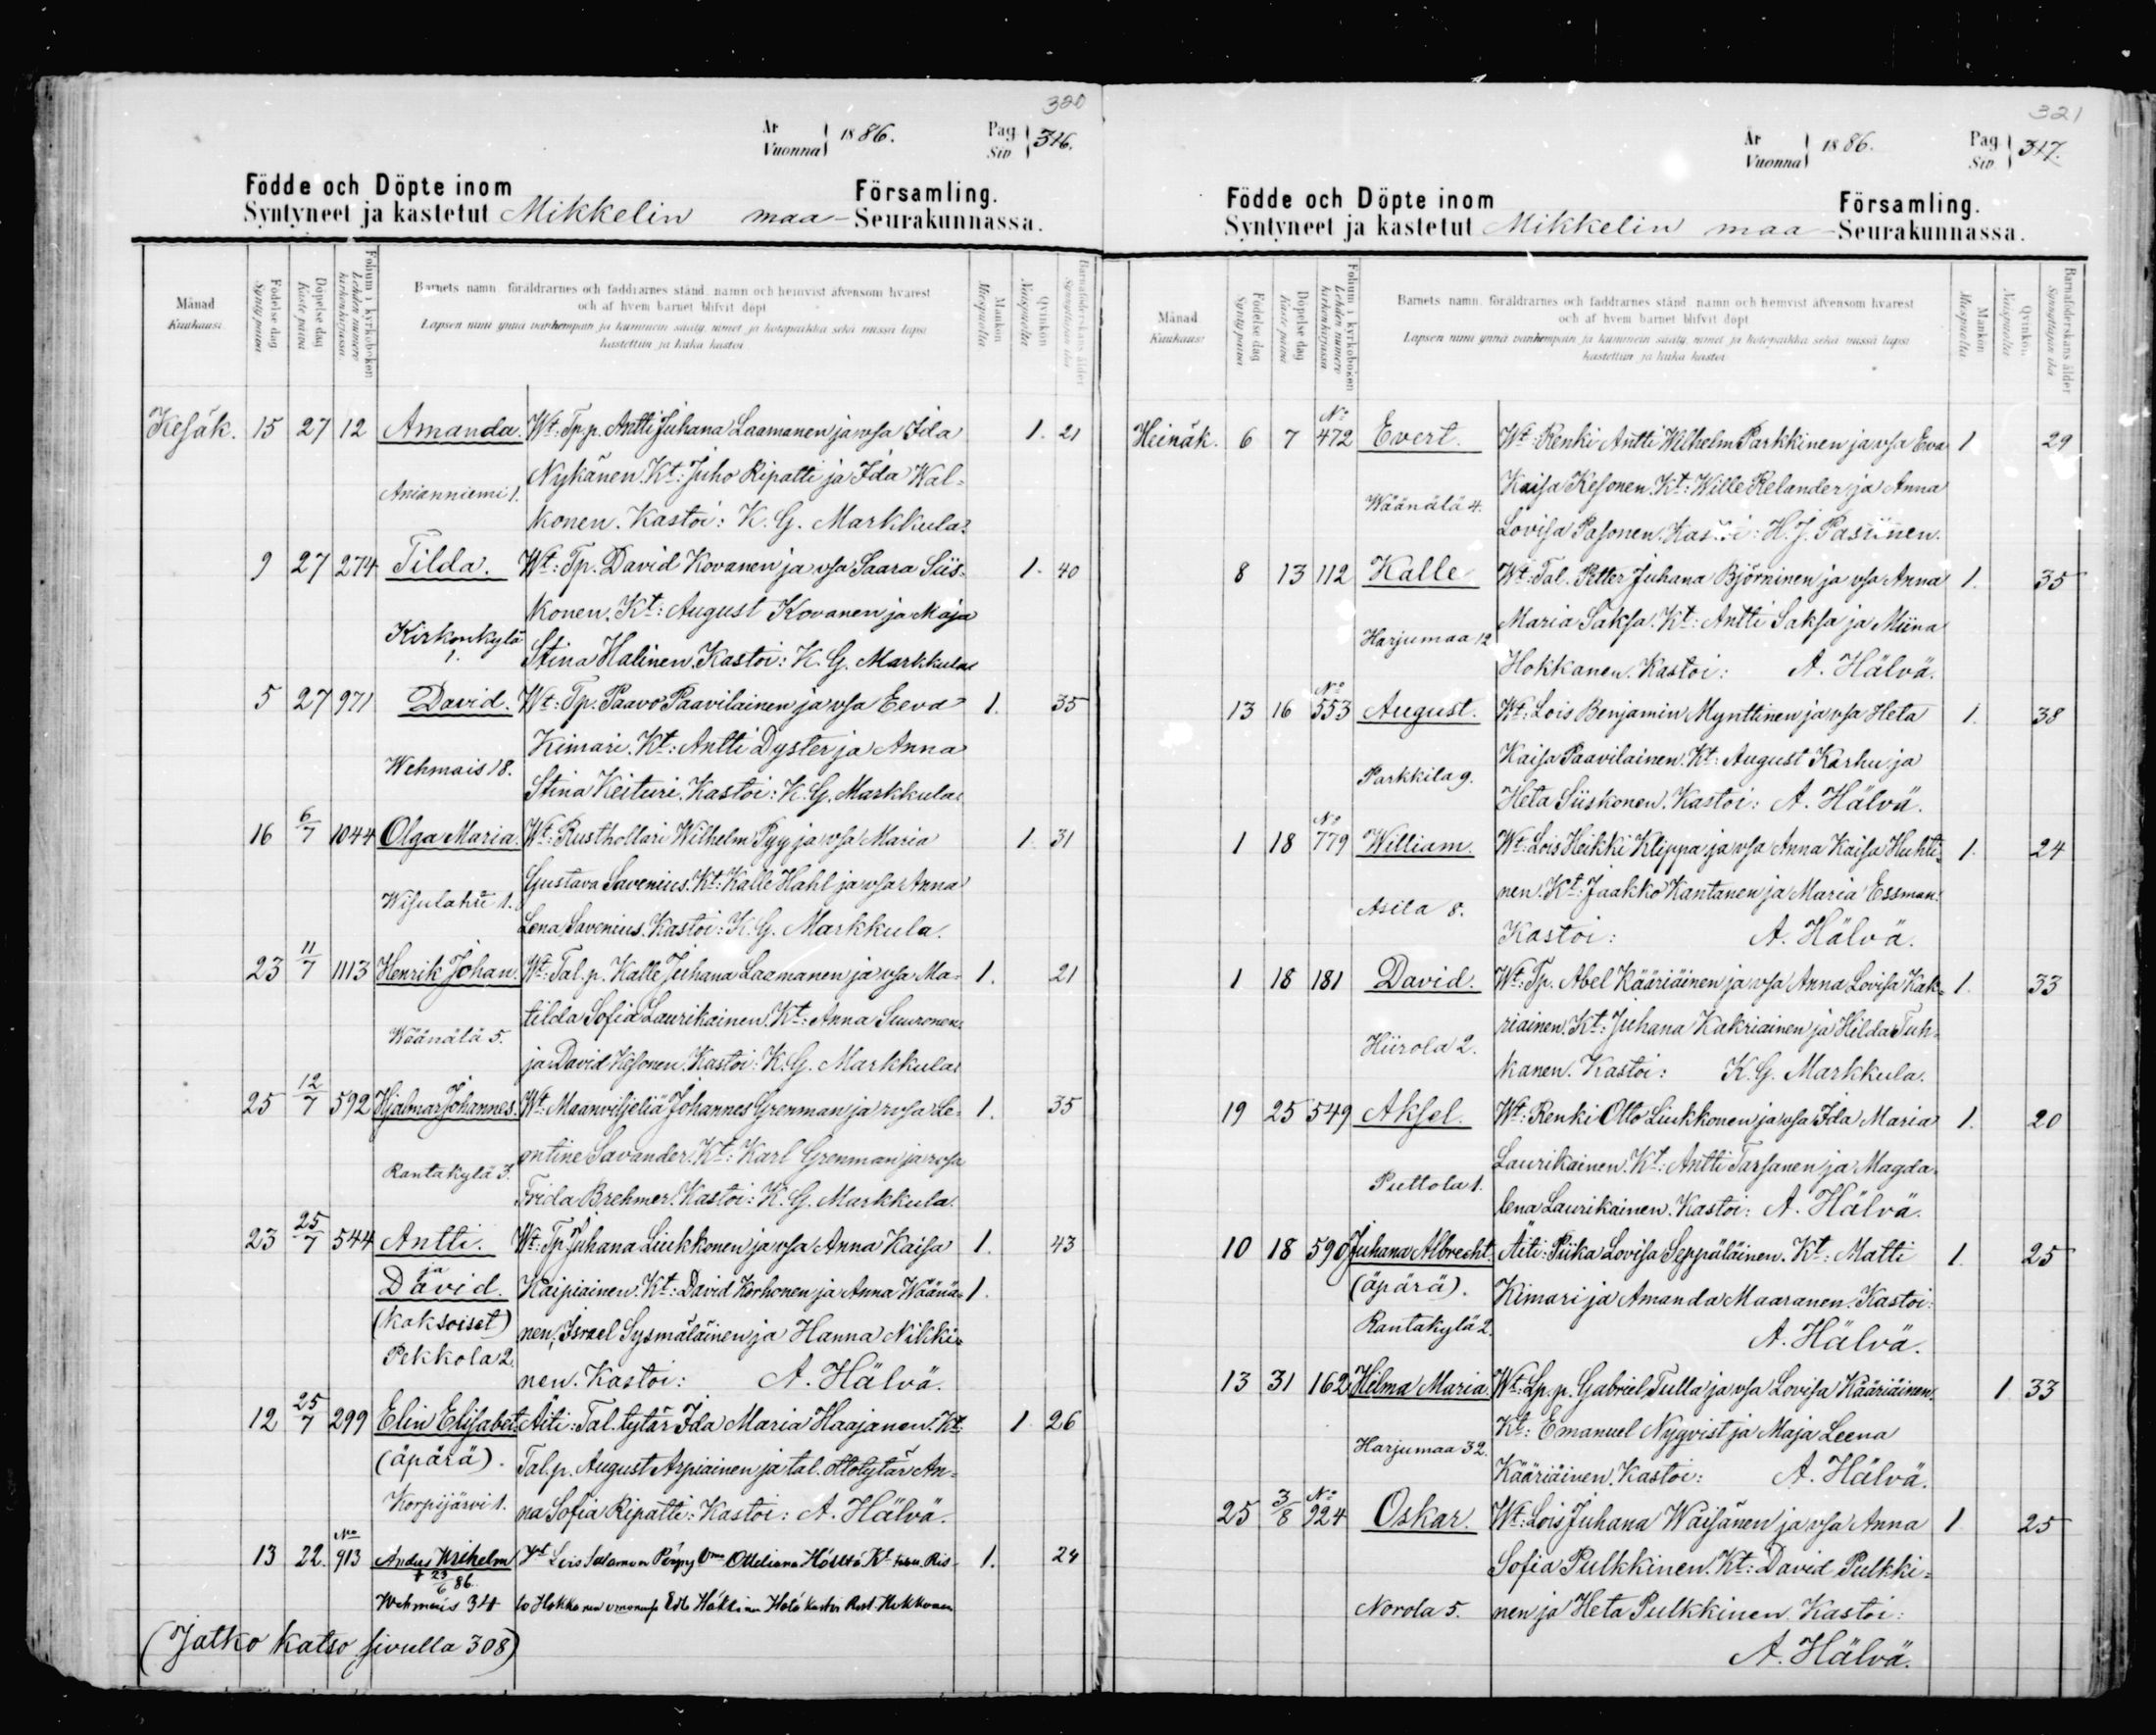 320
År
Vuonna 1886.
Pag
Siv 316.
Födde och Döpte inom Församling.
Syntyneet ja kastetut Mikkelin maa-Seurakunnassa.
Månad
Kuukausi
Födelse dag
Syntypäivä
Döpelse dag
Kaste päivä
Folium i kyrkoboken
Lehden numero kirkonkirjassa
Barnets namn, föräldrarnes och faddrarnes stånd, namn och hemvist äfvensom hvarest
och af hvem barnet blifvit döpt
Lapsen nimi ynnä vanhempain ja kummein sääty, nimet ja kotopaikka sekä missä lapsi
kastettiin ja kuka kastoi
Mankön
Miespuolia
Qvinkön
Naispuolia
Barnaföderskans ålder
Synnyttäjän ikä
Kesäk. 15 27 12 Amanda. Wt: Tp.p. Antti Juhana Laamanen ja vsa Ida 1. 21
Nykänen. Kt: Juho Ripatti ja Ida Wal-
Anianniemi 1.
konen. Kastoi: K. G. Markkula.
9 27 274 Tilda. Wt: Tp. David Kovanen ja vsa Saara Siis- 1. 40
konen. Kt: August Kovanen ja Maja
Kirkonkylä 1.
Stina Halinen. Kastoi: K. G. Markkula
5 27 971 David. Wt: Tp. Paavo Paavilainen ja vsa Eeva 1. 35
Kimari. Kt: Antti Dyster ja Anna
Wehmais 18.
Stina Keituri. Kastoi: K. G. Markkula.
16 6/7 1044 Olga Maria. Wt: Rusthollari Wilhelm Pyy ja vsa Maria 1. 31
Gustava Savenius. Kt: Kalle Hahl ja vsa Anna
Wisulahti 1.
Lena Savenius. Kastoi: K. G. Markkula.
23 11/7 1113 Henrik Johan. Wt: Tal.p. Kalle Juhana Laamanen ja vsa Ma- 1. 21
tilda Sofia Laurikainen. Kt: Anna Suuronen
Wäänälä 5.
ja David Kesonen. Kastoi: K. G. Markkula.
25 12/7 592 Hjalmar Johannes. Wt: Maanviljeliä Johannes Grenman ja rvsa Le- 1. 35
ontine Savander. Kt: Karl Grenman ja rvsa
Rantakylä 3.
Frida Brehmer. Kastoi: K. G. Markkula.
23 25/7 544 Antti. Wt: Tp. Juhana Liukkonen ja vsa Anna Kaisa 1. 43
ja
David. Kaipiainen. Kt: David Korhonen ja Anna Wäänä- 1.
(kaksoiset) nen, Israel Sysmäläinen ja Hanna Nikki-
Pekkola 2.
nen. Kastoi: A. Hälvä.
12 25/7 299 Elin Elisabet. Äiti: Tal. tytär Ida Maria Haajanen. Kt: 1. 26
(äpärä). Tal.p. August Arpiainen ja tal. tytär An-
Korpijärvi 1. na Sofia Ripatti: Kastoi: A. Hälvä.
13 22. No 913 1. 24
† 23/6 86.
Wehmais 34
(Jatko katso sivulla 308)
321
År
Vuonna 1886.
Pag
Siv 317.
Födde och Döpte inom Församling.
Syntyneet ja kastetut Mikkelin maa-Seurakunnassa.
Månad
Kuukausi
Födelse dag
Syntypäivä
Döpelse dag
Kaste päivä
Folium i kyrkoboken
Lehden numero kirkonkirjassa
Barnets namn, föräldrarnes och faddrarnes stånd, namn och hemvist äfvensom hvarest
och af hvem barnet blifvit döpt
Lapsen nimi ynnä vanhempain ja kummein sääty, nimet ja kotopaikka sekä missä lapsi
kastettiin ja kuka kastoi
Mankön
Miespuolia
Qvinkön
Naispuolia
Barnaföderskans ålder
Synnyttäjän ikä
Heinäk. 6 7 No 472 Evert. Wt: Renki Antti Wilhelm Parkkinen ja vsa Eva 1 29
Kaisa Kesonen. Kt: Wille Relander ja Anna
Wäänälä 4.
Lovisa Pasonen. Kastoi: H. J. Pasiinen.
8 13 112 Kalle Wt: Tal. Petter Juhana Björninen ja vsa Anna 1. 35
Maria Saksa. Kt: Antti Saksa ja Miina
Harjumaa 12
Hokkanen. Kastoi: A. Hälvä.
13 16 No 553 August. Wt: Lois Benjamin Mynttinen ja vsa Heta 1. 38
Kaisa Paavilainen. Kt: August Karhu ja
Parkkila 9.
Heta Siiskonen. Kastoi: A. Hälvä.
1 18 No 779 William. Wt: Lois Heikki Klippa ja vsa Anna Kaisa Huhti- 1. 24
nen. Kt: Jaakko Kantanen ja Maria Essman.
Asila 8.
Kastoi: A. Hälvä.
1 18 181 David. Wt: Tp. Abel Kääriäinen ja vsa Anna Lovisa Kak- 1. 33
riainen. Kt: Juhana Kakriainen ja Hilda Tuh-
Hiirola 2.
kanen. Kastoi: K. G. Markkula.
19 25 549 Aksel. Wt: Renki Otto Liukkonen ja vsa Ida Maria 1. 20
Laurikainen. Kt: Antti Tarsanen ja Magda-
Puttola 1.
lena Laurikainen. Kastoi: A. Hälvä.
10 18 590 Juhana Albrecht. Äiti: Piika Lovisa Seppäläinen. Kt: Matti 1. 25
(äpärä). Kimari ja Amanda Maaranen. Kastoi:
Rantakylä 2.
A. Hälvä.
13 31 162 Hilma Maria. Wt: Lp.p. Gabriel Tulla ja vsa Lovisa Kääriäinen. 1. 33
Kt: Emanuel Nyqvist ja Maja Leena
Harjumaa 32.
Kääriäinen. Kastoi: A. Hälvä.
25 3/8 No 924 Oskar. Wt: Lois Juhana Wäisänen ja vsa Anna 1 25
Sofia Pulkkinen. Kt: David Pulkki-
Norola 5. nen ja Heta Pulkkinen. Kastoi:
A. Hälvä.